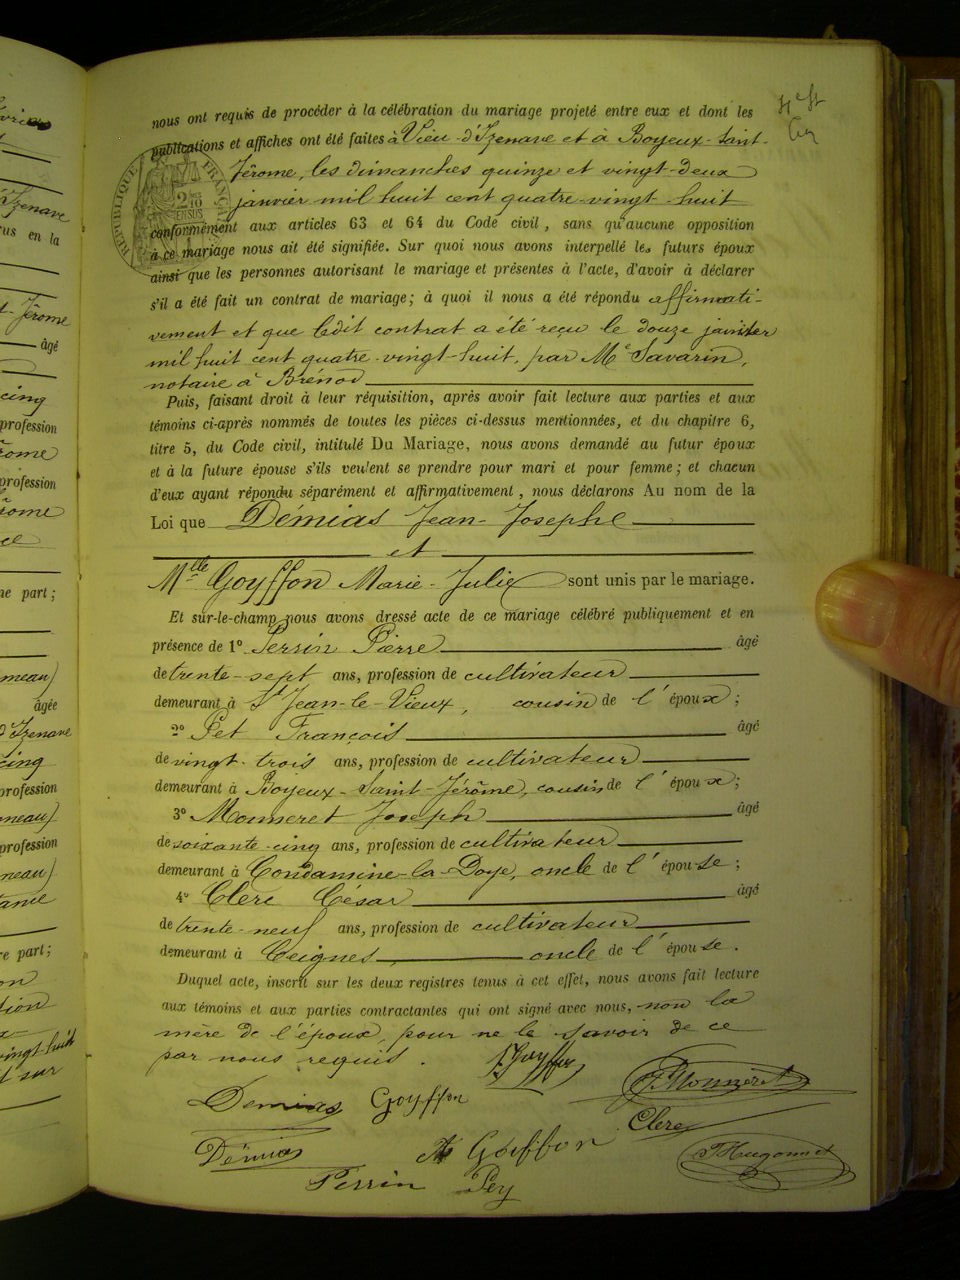 nous ont requis de procéder à la célébration du mariage projeté entre eux et dont les
publications et affiches ont été faites à Vieu-d'Izenave et à Boyeux-Saint-
Jérome, les dimanches quinze et vingt-deux
janvier mil huit cent quatre-vingt-huit
conformément aux articles 63 et 64 du Code civil, sans qu'aucune opposition
à ce mariage nous ait été signifiée. Sur quoi nous avons interpellé les futurs époux
ainsi que les personnes autorisant le mariage et présentes à l'acte, d'avoir à déclarer
s'il a été fait un contrat de mariage; à quoi il nous a été répondu affirmati-
vement et que ledit contrat a été reçu le douze janvier
mil huit cent quatre-vingt-huit, par Me Savarin,
notaire à Brénod
Puis, faisant droit à leur réquisition, après avoir fait lecture aux parties et aux
témoins ci-après nommés de toutes les pièces ci-dessus mentionnées, et du chapitre 6,
titre 5, du Code civil, intitulé Du Mariage, nous avons demandé au futur époux
et à la future épouse s'ils veulent se prendre pour mari et pour femme; et chacun
d'eux ayant répondu séparément et affirmativement, nous déclarons Au nom de la
Loi que Démias Jean-Josephe
et
Mlle Goyffon Marie-Julie sont unis par le mariage.
Et sur-le-champ nous avons dressé acte de ce mariage célébré publiquement et en
présence de 1º Perrin Pierre âgé
de trente-sept ans, profession de cultivateur
demeurant à St Jean-le-Vieux, cousin de l'époux;
2º Pet François âgé
de vingt-trois ans, profession de cultivateur
demeurant à Boyeux-Saint-Jérôme, cousin de l'époux;
3º Monneret Joseph âgé
de soixante-cinq ans, profession de cultivateur
demeurant à Condamine-la-Doye, oncle de l'épouse;
4º Clerc César âgé
de trente-neuf ans, profession de cultivateur
demeurant à Ceignes oncle de l'épouse.
Duquel acte, inscrit sur les deux registres tenus à cet effet, nous avons fait lecture
aux témoins et aux parties contractantes qui ont signé avec nous, non la
mère de l'époux, pour ne le savoir de ce
par nous requis.
Goyffon
Monneret
Demias Goyffon
Clerc
Démias Goiffon
Hugonnet
Perrin Pey